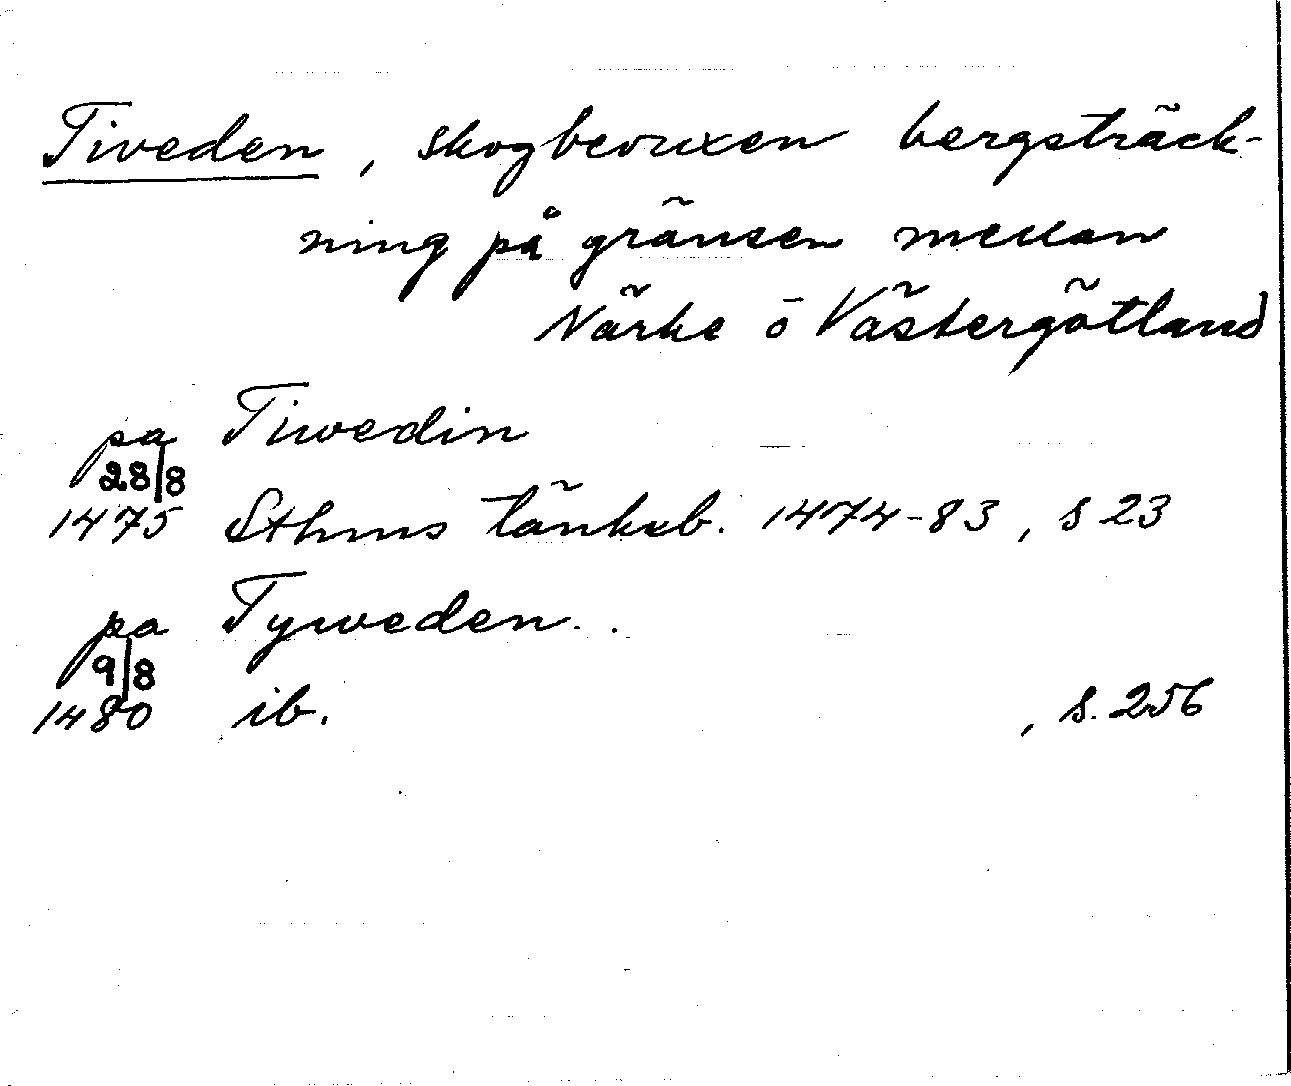 Tiveden, skogbevuxen bergsträck-
ning på gränsen mellan
Närke o Västergötland
pa Tiwedin
28/8
1475 Sthms tänkeb. 1474-83, s 23
pa Tyweden..
9/8
1480 ib. , s. 256